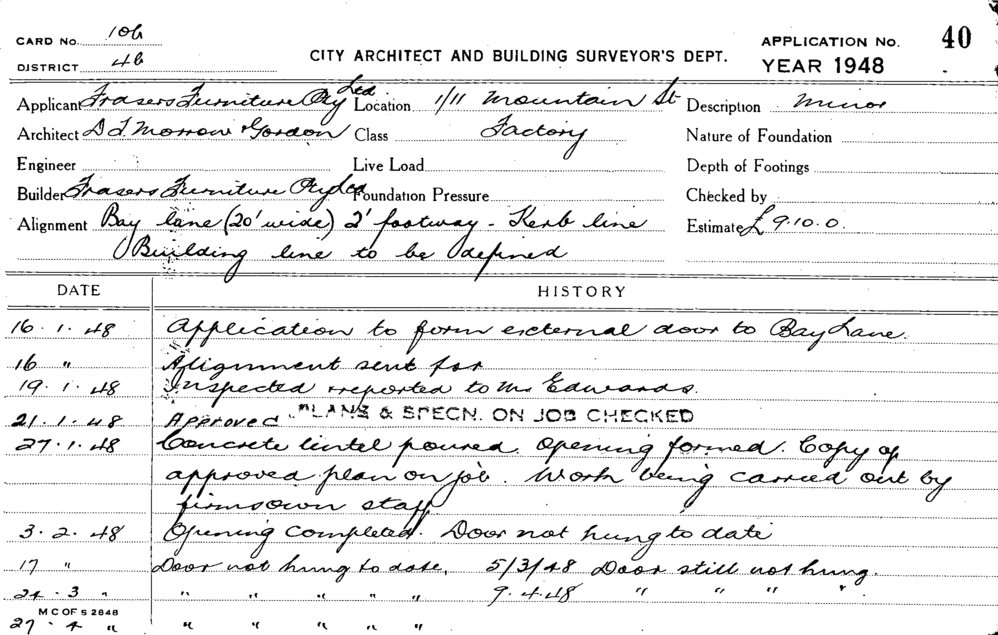 CARD No. 106
DISTRICT 46
CITY ARCHITECT AND BUILDING SURVEYOR'S DEPT.
APPLICATION No. 40
YEAR 1948
Applicant Frasers Furniture Pty Ltd Location 1/11 Mountain St Description Minor
Architect D T Morrow & Gordon Class Factory Nature of Foundation
Engineer Live Load Depth of Footings
Builder Frasers Furniture Pty Ltd Foundation Pressure Checked by
Alignment Bay lane (20' wide) 2' footway - Kerb line Estimate £ 9.10.0.
Building line to be defined
DATE HISTORY
16.1.48 Application to form external door to Bay Lane.
16 " Alignment sent for
19.1.48 Inspected & reported to Mr Edwards.
21.1.48 Approved PLANS & SPECN. ON JOB CHECKED
27.1.48 Concrete lintel poured. Opening formed. Copy of
approved plan on job. Work being carried out by
firms own staff
3.2.48 Opening completed. Door not hung to date
17 " Door not hung to date, 5/3/48 Door still not hung.
24.3 " " " " " " 9.4.48 " " " "
M C OF S 2848
27.4 " " " " " "